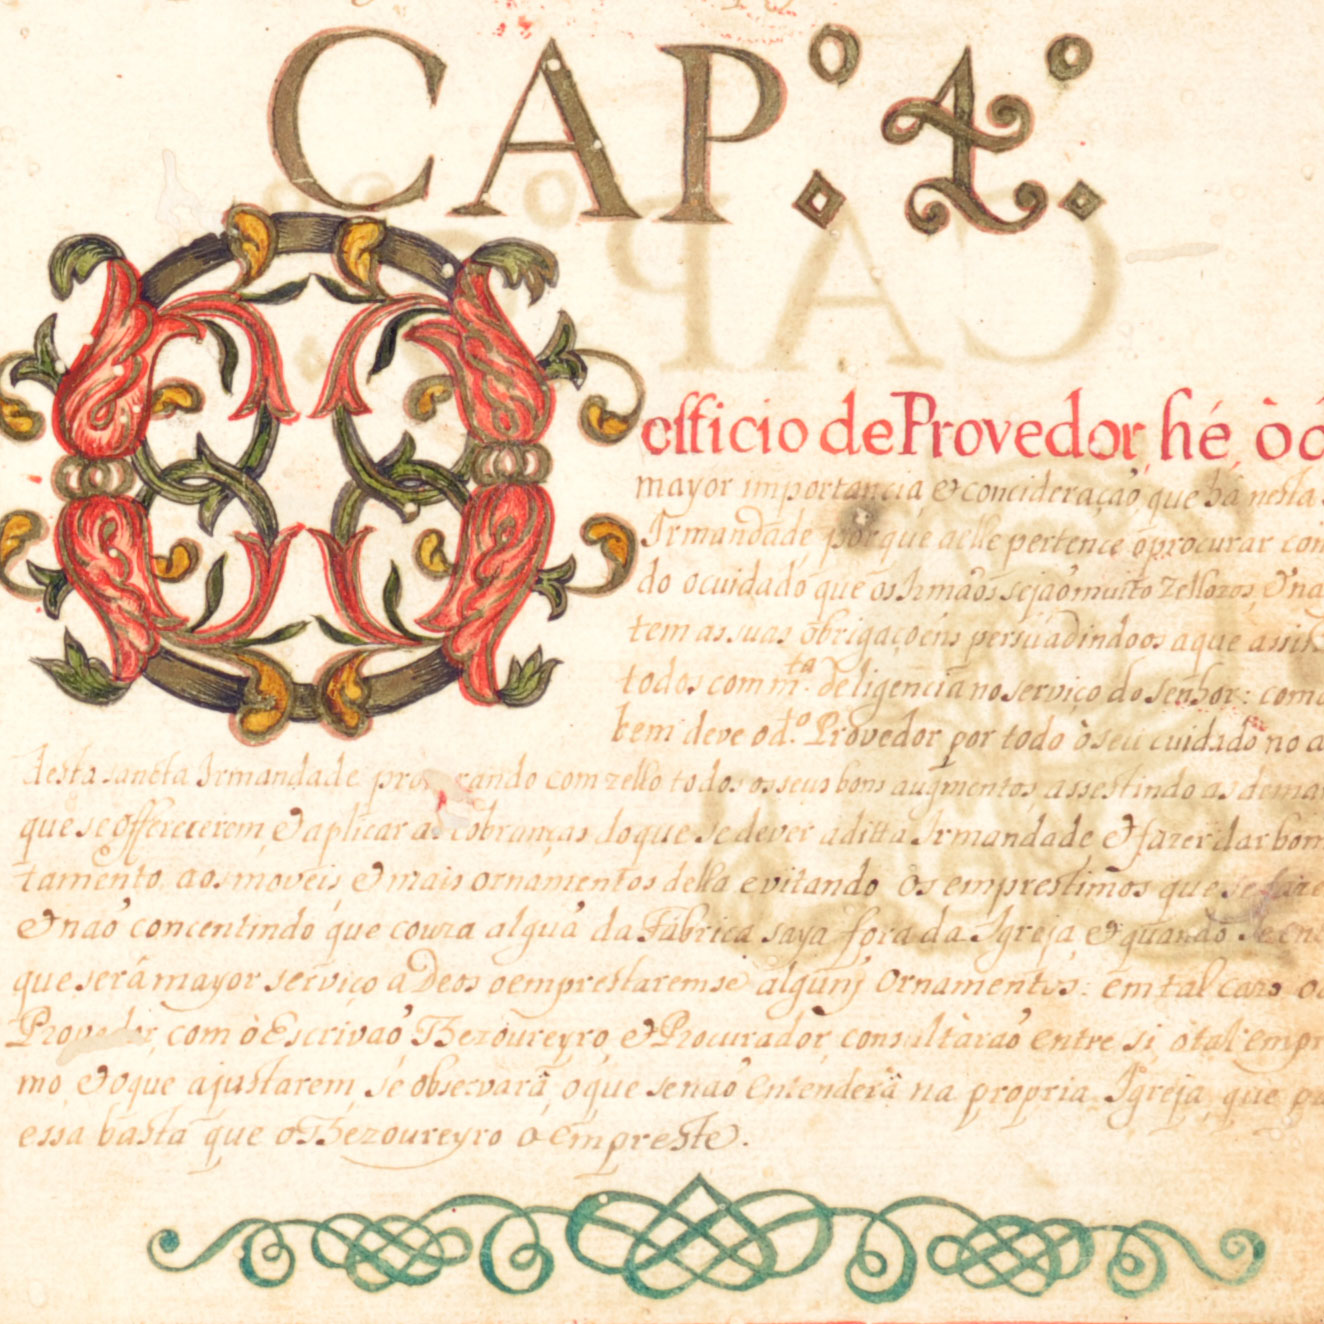 CAP.º 1.º
O officio de Provedor, hé, ò d
mayor importancia, & concideração, que há nesta
Irmandade, porque aelle pertence oprocurar com
do ocuidado que os Irmãos sejão muito zellozos, &
tem as suas obrigaçoens persuadindoos aque
todos com m.ta deligencia no serviço do senhor: como
bem deve o d.to Provedor por todo ò seu cuidado no a
desta sancta Irmandade procurando com zello todos os seus bons augmentos, assestindo as
que se offerecerem, & aplicar as cobranças do que se dever a ditta Irmandade & fazer dar bom
tamento, aos moveis & mais ornamentos della evitando Os emprestimos que se
& não concentindo que couza algua da Fabrica saya fora da Igreja & quando Se
que será mayor serviço a Deos oemprestaremse alguns Ornamentos: em tal cazo
Provedor, com ò Escrivão Thezoureyro, & Procurador consultàrão entre si, o tal empr
mo, & oque ajustarem, se observarà, o que senão Entenderà na propria Igreja, que
essa basta que o Thezoureyro o empreste.